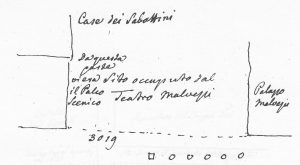 Case dei Sabattini
Da questa
parte
vi era Sito occupato dal
il Palco
Scenico Teatro Malvezzi
Palazzo
Malvezzi
3019